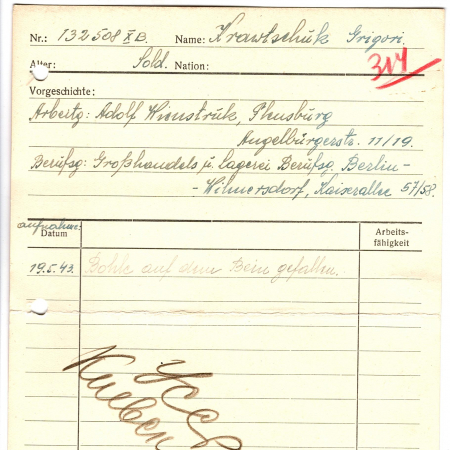 Nr.: 132508 XB. Name: Krawtschuk Grigori.
Alter: Sold. Nation:
314
Vorgeschichte:
Arbertg: Adolf Wienstruk, Flensburg
Angelbürgerstr. 11/19.
Berufsg: Großhandels u. lagerei Berufsg. Berlin-
-Wilmersdorf, Kaiserallee 57/58.
aufnahme:
Datum Arbeits-
fähigkeit
19.5.43. Bohle auf dem Bein gefallen.